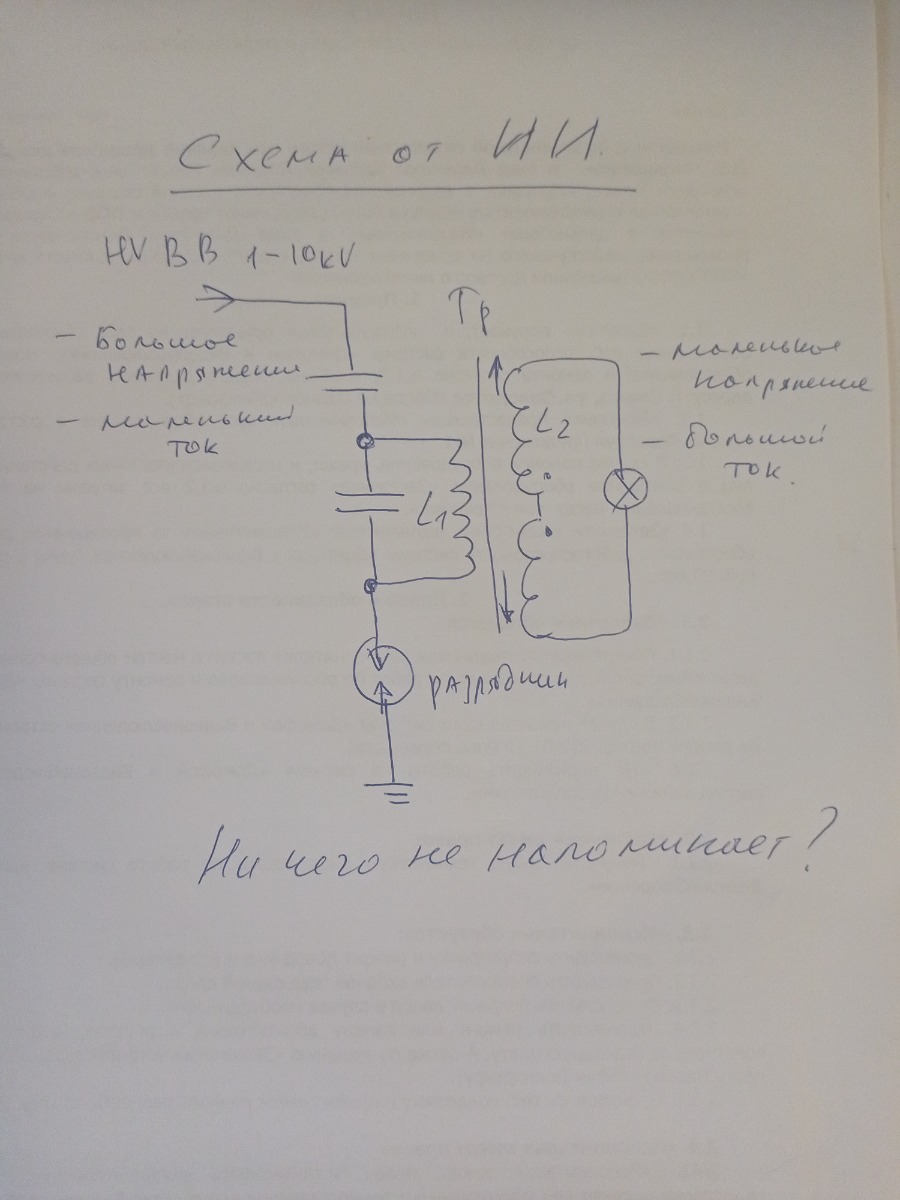 Схема от ИИ.
HV ВВ 1-10kV
Тр
- Большое
напряжение
- маленький
ток
L1
L2
- маленькое
напряжение
- большой
ток.
разрядник
Ни чего не напоминает?